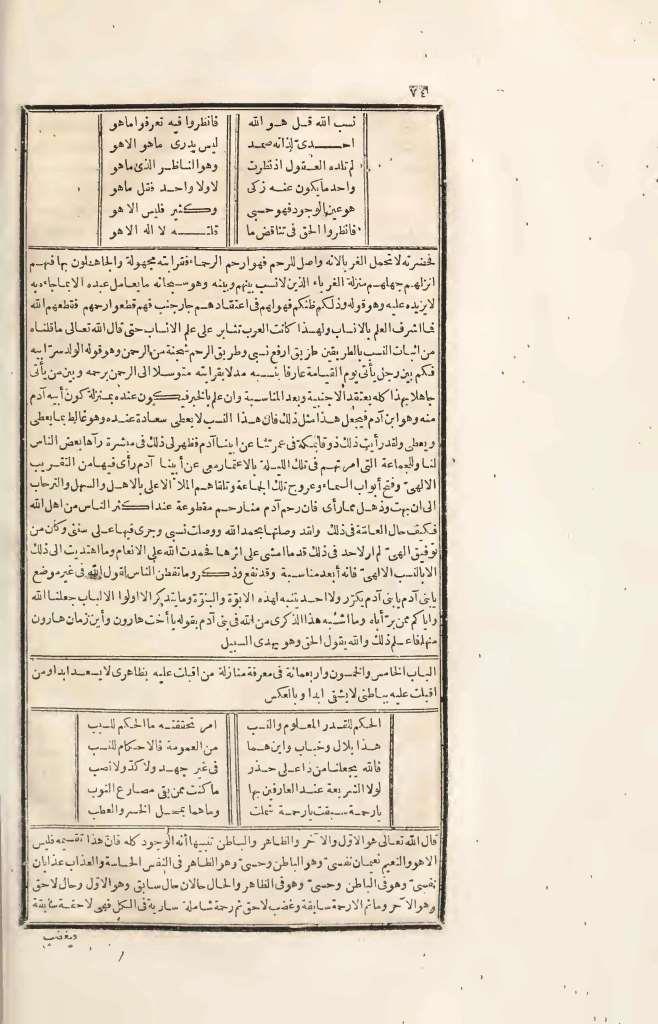 ٧٤
نسب الله قل هو الله فانظروا فيه تعرفوا ماهو
احدى لذاته صمد ليس يدرى ماهو الاهو
لم تلده العقول اذ نظرت وهو الناظر الذى ماهو
واحد ما يكون عنه زكى لا ولا واحد فقل ماهو
هو عين الوجود فهو حسبى وكثير فليس الا هو
فانظروا الحق فى تناقض ما قلته لا اله الا هو
فحضرته لا تحمل الغربا لانه واصل للرحم فهو ارحم الرحماء فقرابته مجهولة والجاهلون بها فهم
انزلهم جهلهم منزلة الغرباء الذين لا نسب بينهم وبينه وهو سبحانه ما يعامل عبده الا بما جاء به
لا يزيده عليه وهو قوله وذلكم ظنكم فهو لهم فى اعتقادهم جار جنب فهم قطعوا رحمهم فقطعهم الله
فما اشرف العلم بالانساب ولهذا كانت العرب تثابر على علم الانساب حتى قال الله تعالى ما قلناه
من اثبات النسب بالطريقين طريق ارفع نسبى وطريق الرحم شجنة من الرحمن وهو قوله الولد سر ابيه
فكم بين رجل يأتى يوم القيامة عارفا بنسبه مدلا بقرابته متوسلا الى الرحمن برحمه وبين من يأتى
جاهلا بهذا كله يعتقد الاجنبية وبعد المناسبة وان علم بالخبر فيكون عنده بمنزلة كون أبيه آدم
منه وهو ابن آدم فيجعل هذا مثل ذلك فان هذا النسب لا يعطى سعادة عنده وهو غالط بما يعطى
ويعطى ولقد رأيت ذلك ذوقا بمكة فى عمرتنا عن ابينا آدم فظهر لى ذلك فى مبشرة رآها بعض الناس
لنا وللجماعة التى امرتهم فى تلك الليلة بالاعتمار معى عن أبينا آدم رأى فيها من التقريب
الالهى وفتح أبواب السماء وعروج تلك الجماعة وتلقاهم الملأ الاعلى بالاهل والسهل والترحاب
الى ان بهت وذهل مما رأى فان رحم آدم منا رحم مقطوعة عند اكثر الناس من اهل الله
فكيف حال العامة فى ذلك ولقد وصلتها بحمد الله ووصلت نسبى وجرى فيها على سننى وكان من
توفيق الهى لم ار لاحد فى ذلك قدما امشى على اثرها فحمدت الله على الانعام وما اهتديت الى ذلك
الا بالنسب الالهى فانه أبعد مناسبة وقد نفع وذكر وما تفطن الناس لقول الله فى غير موضع
يا بنى آدم يا بنى آدم يكرر ولا احد ينتبه لهذه الابوّة والبنوّة وما يتذكر الا اولوا الالباب جعلنا الله
واياكم ممن برّ أباه وما اشبه هذا الذكرى من الله فى بنى آدم بقوله يا أخت هارون وأين زمان هارون
منها فاعلم ذلك والله يقول الحق وهو يهدى السبيل
الباب الخامس والخمسون واربعمائة فى معرفة منازلة من اقبلت عليه بظاهرى لا يسعد ابدا ومن
اقبلت عليه بباطنى لا يشقى ابدا وبالعكس
الحكم للقدر المعلوم والنسب امر تحققته ما الحكم للسبب
هذا بلال وخباب وابن هما من العمومة فالاحكام للنسب
فالله يجعلنا من ذا على حذر فى غير جهد ولا كد ولا نصب
لولا الشريعة عند العارفين بها ما كنت ممن يقى مصارع النوب
يا رحمة سبقت يا رحمة شملت وما هما بمحل الخسر والعطب
قال الله تعالى هو الاول والآخر والظاهر والباطن تنبيها أنه الوجود كله فان هذا تقسيمه فليس
الا هو والنعيم نعيمان نفسى وهو الباطن وحسى وهو الظاهر فى النفس الحساسة والعذاب عذابان
نفسى وهو فى الباطن وحسى وهو فى الظاهر والحال حالان حال سابق وهو الاول وحال لاحق
وهو الآخر وما ثم الا رحمة سابقة وغضب لاحق ثم رحمة شاملة سارية فى الكل فهى لاحقة سابقة
وبغضب